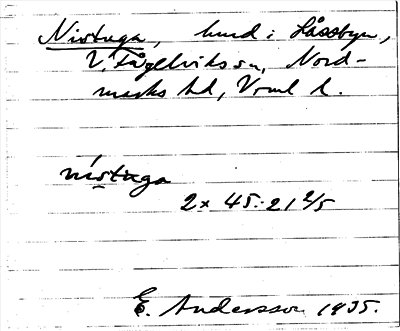 Nistuga, hmd i Håssbyn,
V. Fågelviks sn, Nord-
marks hd, Vrml l.
nístuga
2x 45: 21 2/5
E. Andersson 1935.